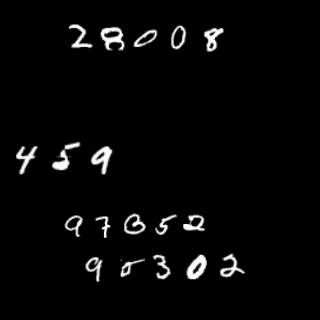 28008
459
97352
90302